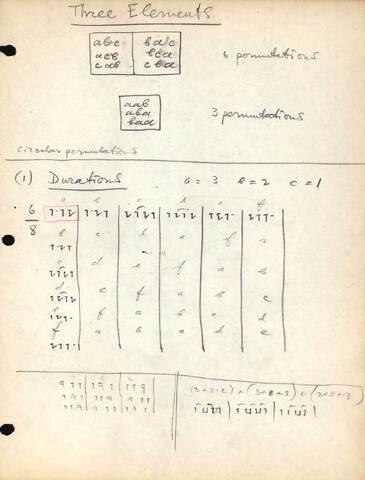 Three Elements
abc bac
acb bca
cab cba
6 permutations
aab
aba
baa
3 permutations
circular permutations
(1) Durations a = 3 b = 2 c = 1
6
8
a b c d e f
b c d e f a
c d e f a b
d e f a b c
e f a b c d
f a b c d e
(3+3+2) + (3+2+3) + (2+3+3)